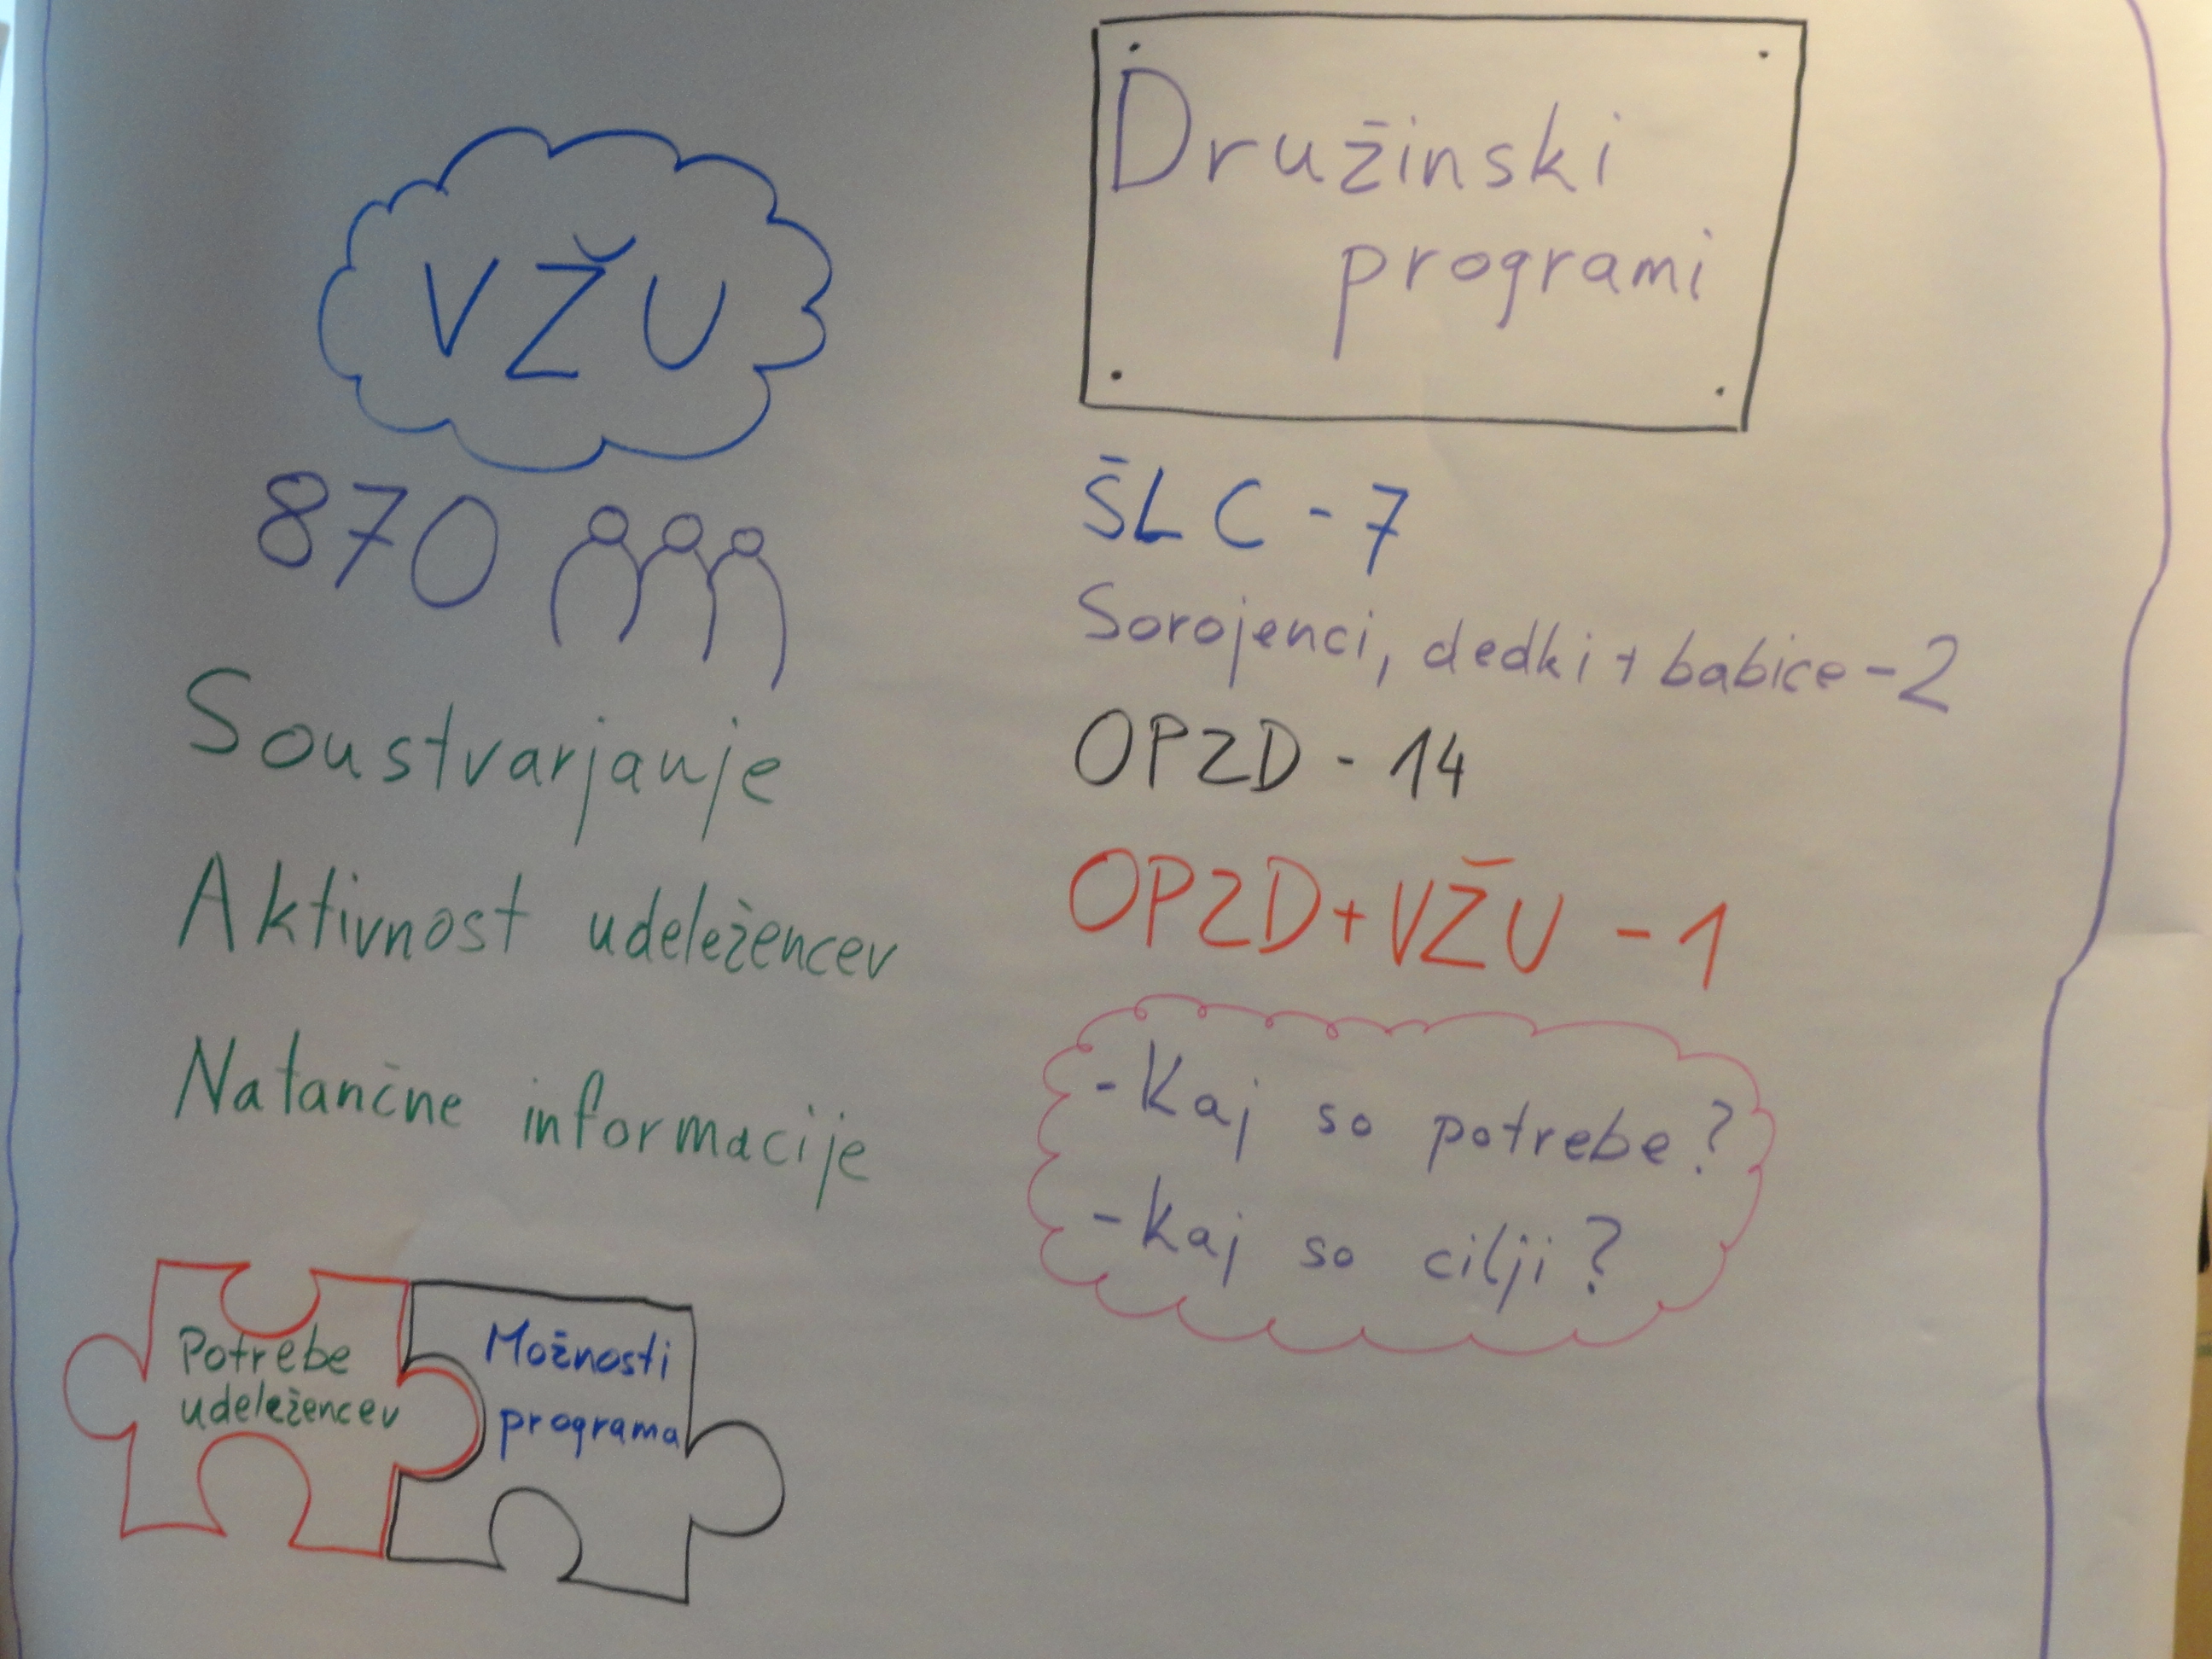 VŽU
870
Soustvarjanje
Aktivnost udeležencev
Natančne informacije
Potrebe
udeležencev
Možnosti
programa
Družinski
programi
ŠLC - 7
Sorojenci, dedki + babice - 2
OPZD - 14
OPZD + VŽU - 1
- Kaj so potrebe?
- Kaj so cilji?